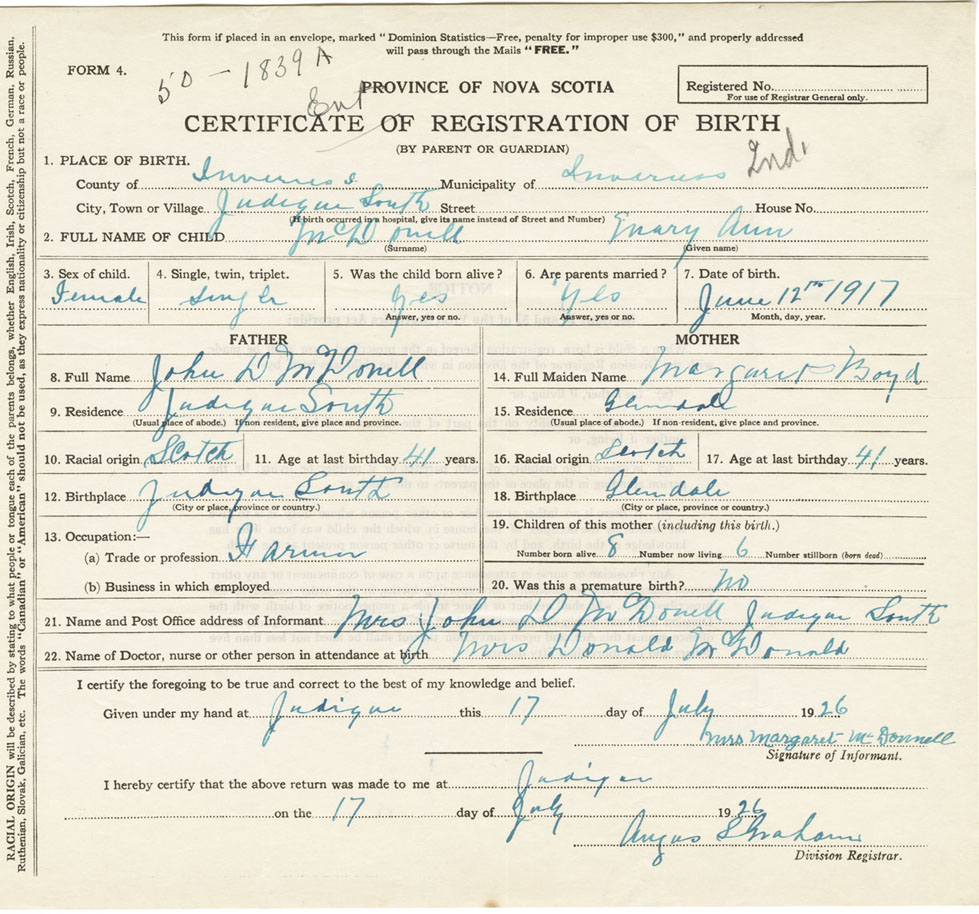 This form if placed in an envelope, marked "Dominion Statistics—Free, penalty for improper use $300," and properly addressed
will pass through the Mails "FREE."
FORM 4.
50 - 1839 A
Ent
PROVINCE OF NOVA SCOTIA
Registered No.
For use of Registrar General only.
CERTIFICATE OF REGISTRATION OF BIRTH
(BY PARENT OR GUARDIAN)
Ind.
1. PLACE OF BIRTH.
County of Inverness Municipality of Inverness
City, Town or Village Judique South Street House No.
(If birth occurred in a hospital, give its name instead of Street and Number)
2. FULL NAME OF CHILD McDonell Mary Ann
(Surname) (Given name)
3. Sex of child. 4. Single, twin, triplet. 5. Was the child born alive? 6. Are parents married? 7. Date of birth.
Female Single Yes Yes June 12th 1917
Answer, yes or no. Answer, yes or no. Month, day, year.
FATHER MOTHER
8. Full Name John D McDonell 14. Full Maiden Name Margaret Boyd
9. Residence Judique South 15. Residence Glendale
(Usual place of abode.) If non-resident, give place and province. (Usual place of abode.) If non-resident, give place and province.
10. Racial origin Scotch 11. Age at last birthday 41 years. 16. Racial origin Scotch 17. Age at last birthday 41 years.
12. Birthplace Judique South 18. Birthplace Glendale
(City or place, province or country.) (City or place, province or country.)
13. Occupation:— 19. Children of this mother (including this birth.)
(a) Trade or profession Farmer Number born alive 8 Number now living 6 Number stillborn (born dead)
(b) Business in which employed 20. Was this a premature birth? No
21. Name and Post Office address of Informant Mrs John D McDonell Judique South
22. Name of Doctor, nurse or other person in attendance at birth Mrs Donald McDonald
I certify the foregoing to be true and correct to the best of my knowledge and belief.
Given under my hand at Judique this 17 day of July 1926
Mrs Margaret McDonnell
Signature of Informant.
I hereby certify that the above return was made to me at Judique
on the 17 day of July 1926
Angus S Graham
Division Registrar.
RACIAL ORIGIN will be described by stating to what people or tongue each of the parents belongs, whether English, Irish, Scotch, French, German, Russian,
Ruthenian, Slovak, Galician, etc. The words "Canadian" or "American" should not be used, as they express nationality or citizenship but not a race or people.